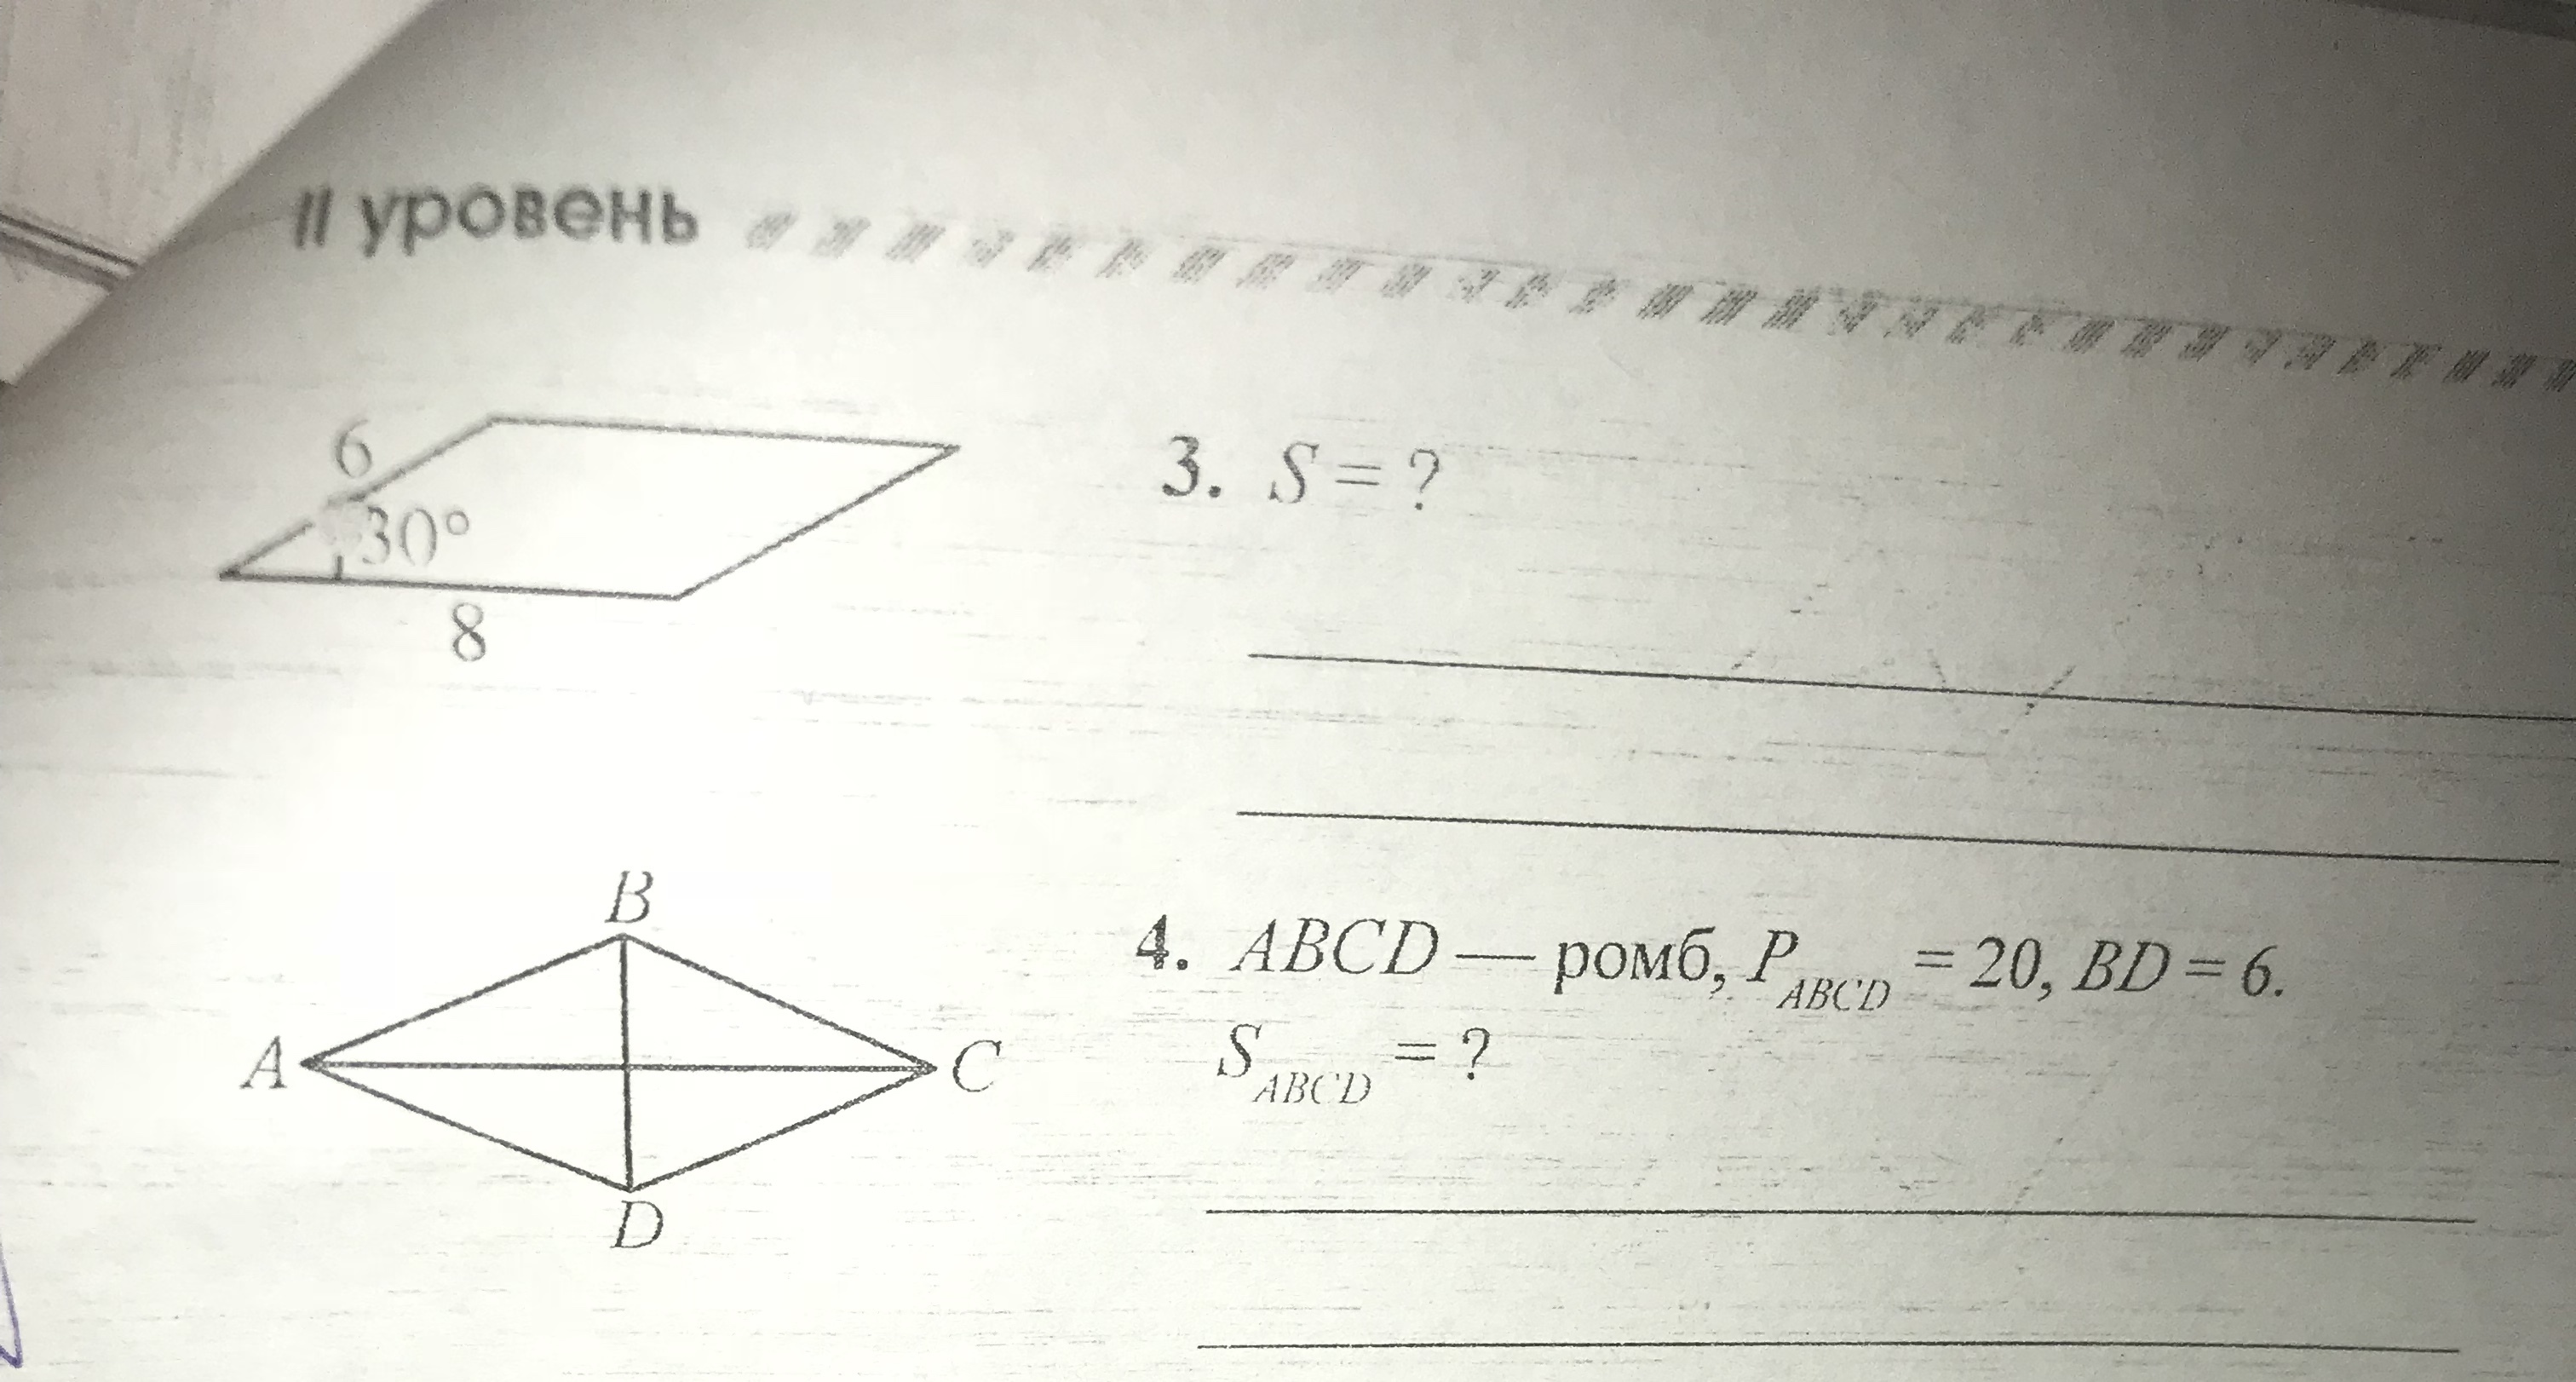 II уровень
6
30°
8
3. S = ?
B
A
C
D
4. ABCD — ромб, P_ABCD = 20, BD = 6.
S_ABCD = ?